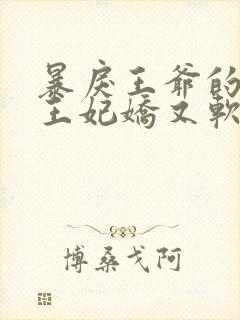 暴戾王爺的
王妃嬌又軟
博桑戈阿